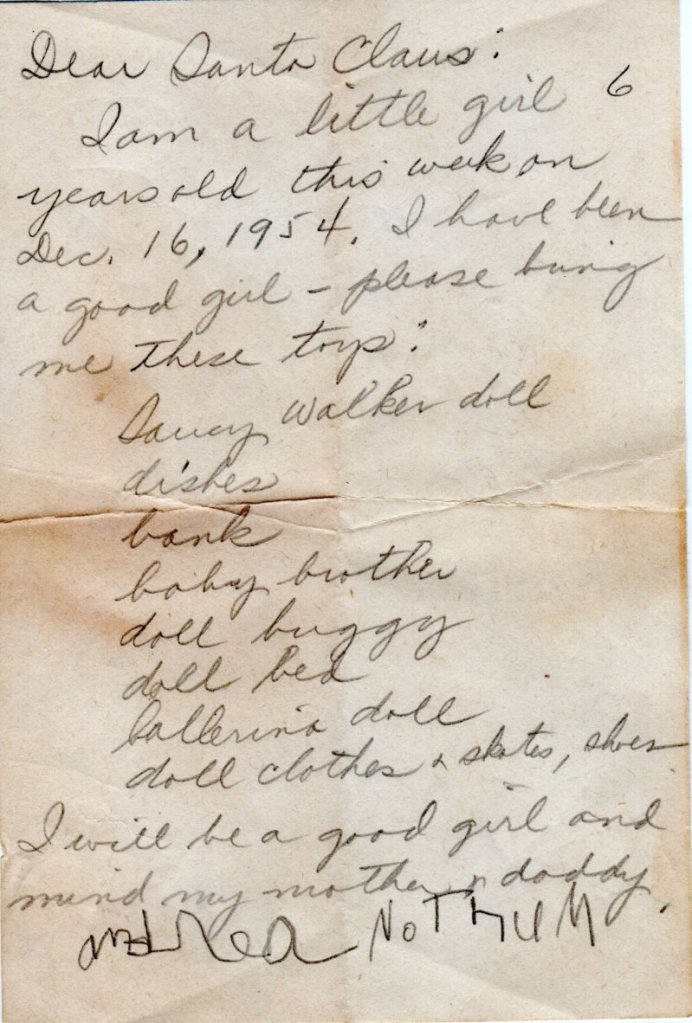 Dear Santa Claus:
I am a little girl 6
years old this week on
Dec. 16, 1954. I have been
a good girl – please bring
me these toys:
Saucy Walker doll
dishes
bank
baby brother
doll buggy
doll bed
ballerina doll
doll clothes & skates, shoes
I will be a good girl and
mind my mother & daddy.
Andrea